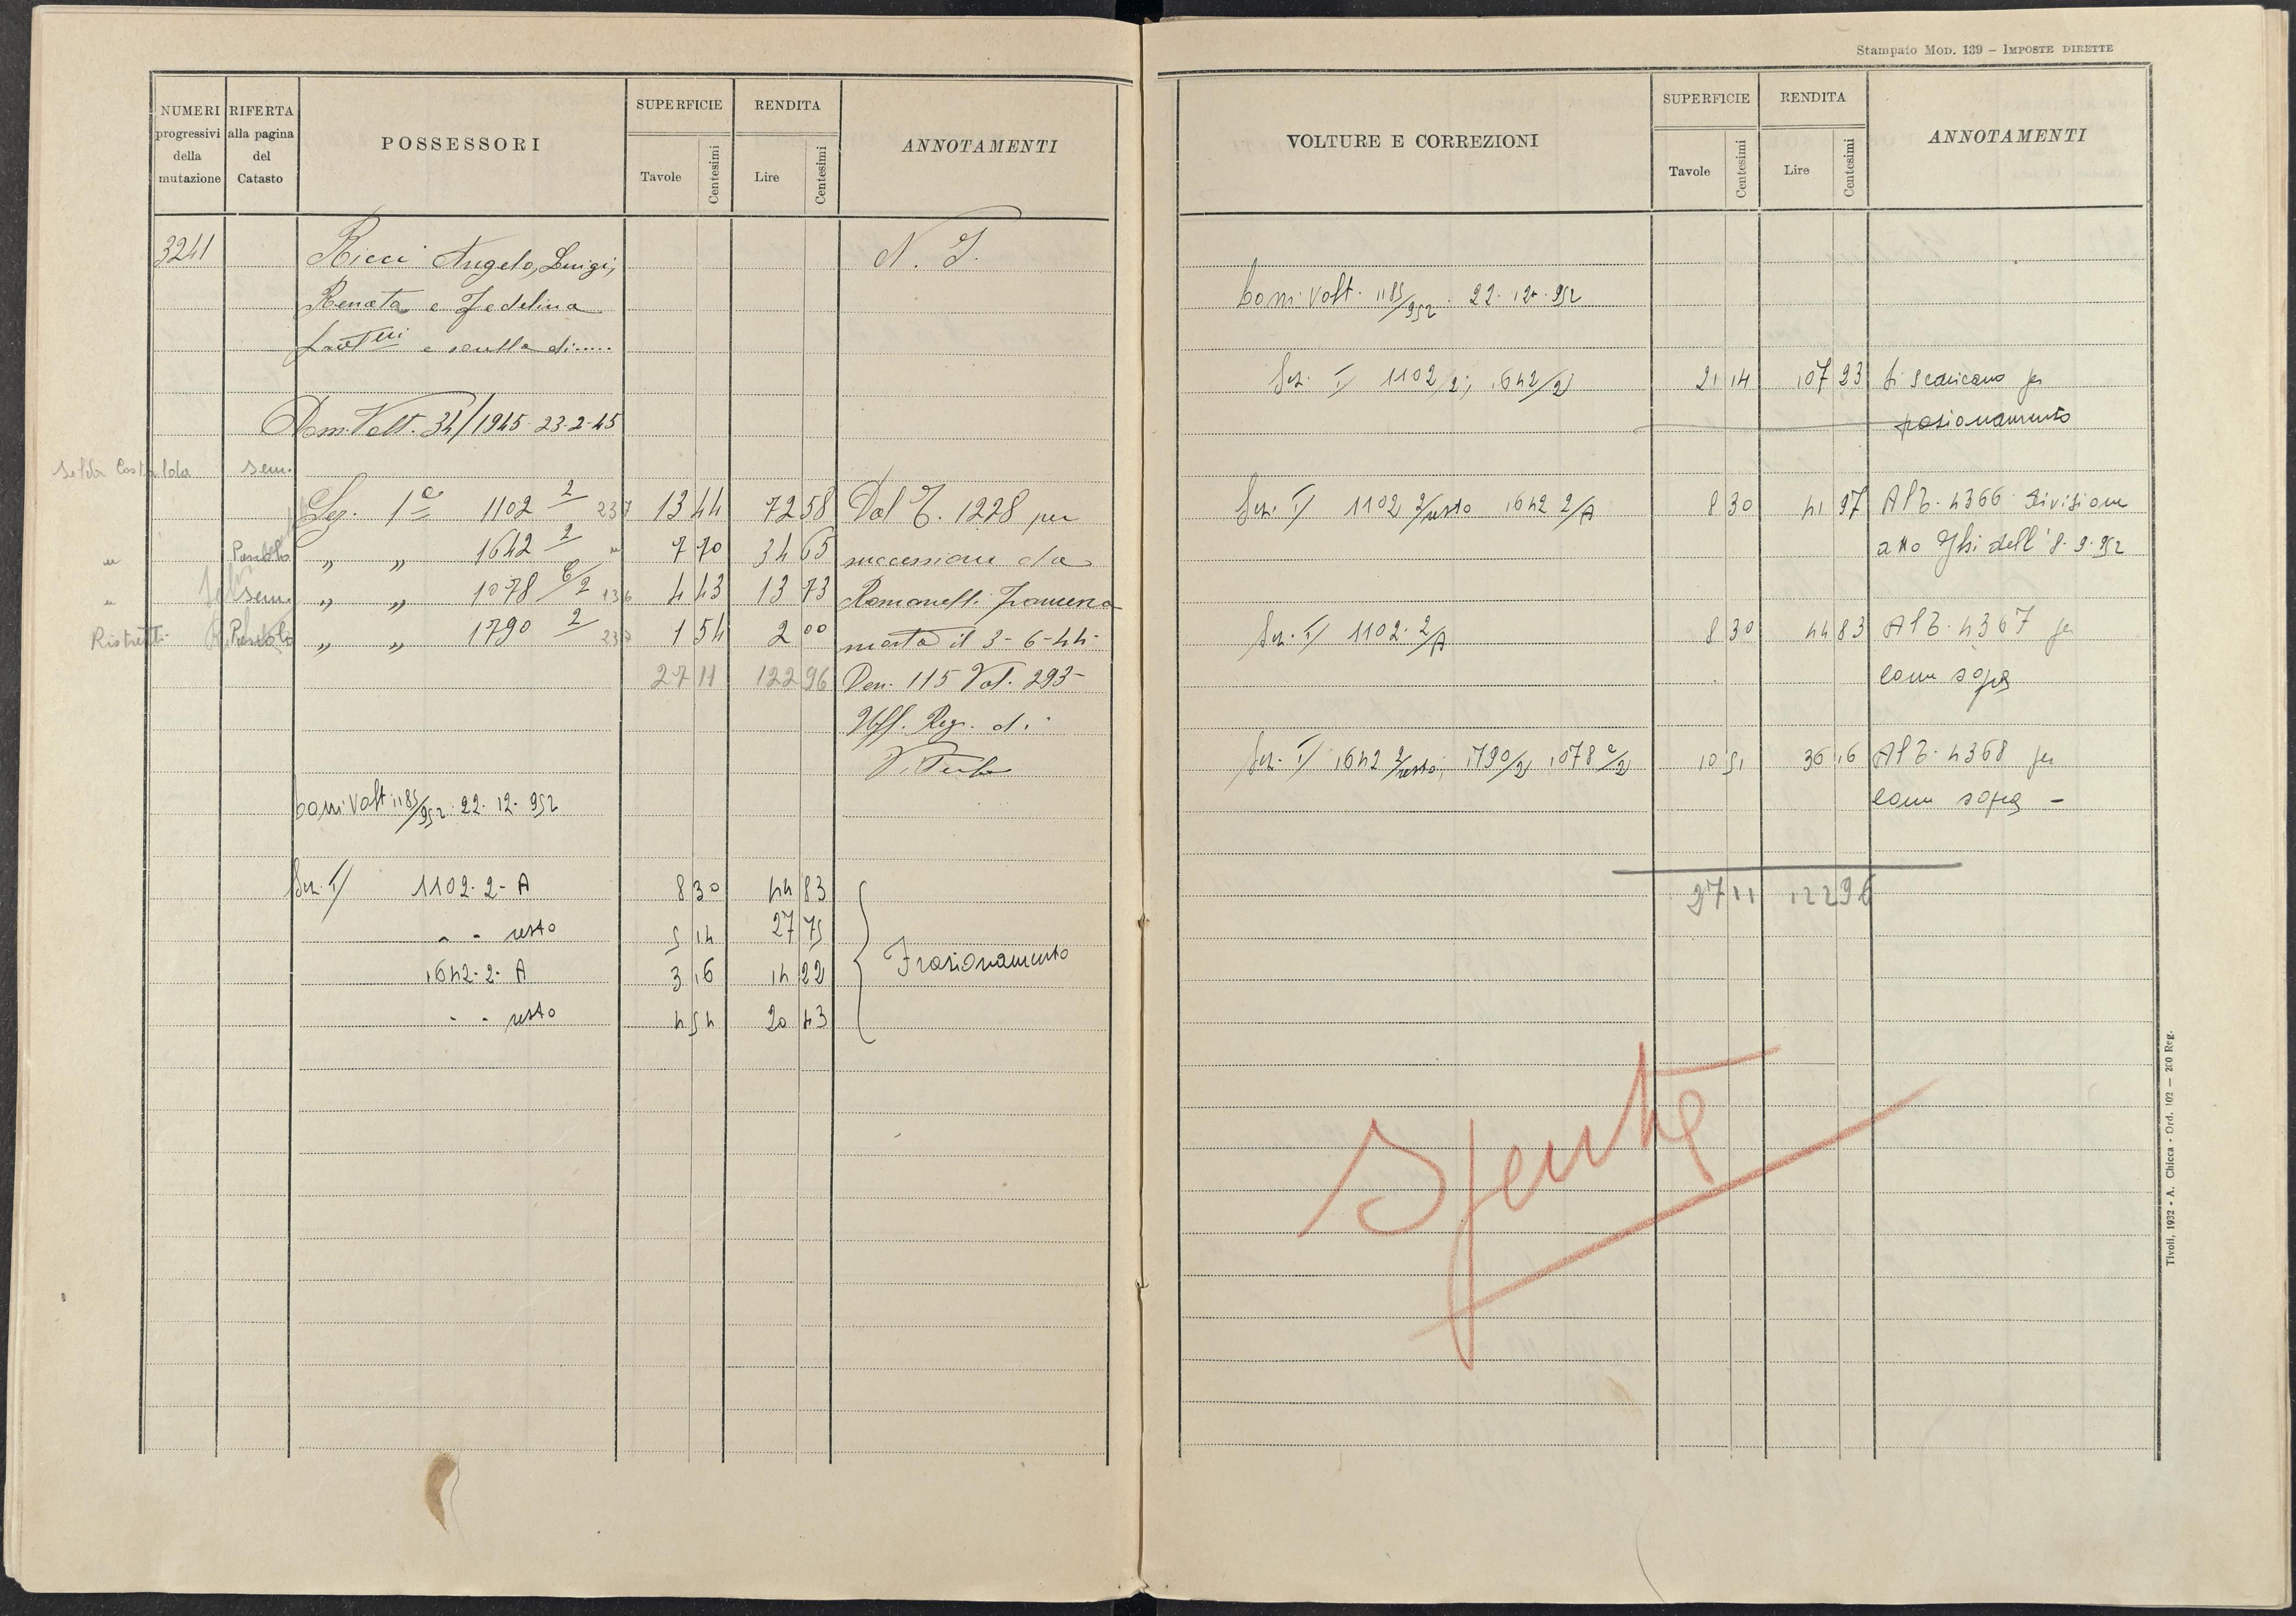 NUMERI progressivi della mutazione
RIFERTA alla pagina del Catasto
POSSESSORI
SUPERFICIE
Tavole Centesimi
RENDITA
Lire Centesimi
ANNOTAMENTI
3241 Ricci Angelo, Luigi, N. T.
Renata e Fedelina
frat.lli e sorelle di.....
Dom. Volt. 34/1945 - 23-2-45
Selva sem.
Sez. 1a 1102 2 237 13 44 72 58 Dal T. 1228 per
" Pascolo " " 1642 2 " 7 70 34 65 successione da
" sem. " " 1078 C/2 136 4 43 13 73 Romanelli Francesca
Ristretti Pascolo " " 1790 2 237 1 54 2 00 morta il 3-6-44-
27 11 122 96 Den. 115 Vol. 293-
Uff. Reg. di
Viterbo
Dom. Volt. 1185/952 22. 12. 952
Sez. I/ 1102-2-A 8 30 44 83
" - resto 5 14 27 75
1642-2-A 3 16 14 22 Frazionamento
" - resto 4 54 20 43
Stampato MOD. 139 – IMPOSTE DIRETTE
VOLTURE E CORREZIONI
SUPERFICIE
Tavole Centesimi
RENDITA
Lire Centesimi
ANNOTAMENTI
Dom. Volt. 1185/952. 22. 12. 952
Sez. I/ 1102/2; 1642/2 21 14 107 23 Si scaricano per
frazionamento
Sez. I/ 1102 2/resto 1642 2/A 8 30 41 97 Al T. 4366 divisione
atto dell'8.9.952
Sez. I/ 1102. 2/A 8 30 44 83 Al T. 4367 per
come sopra
Sez. I/ 1642 2/resto; 1790/2 1078 C/2 10 51 36 16 Al T. 4368 per
come sopra -
27 11 122 96
Spenta
Tivoli, 1932 • A. Chicca - Ord. 102 — 200 Reg.